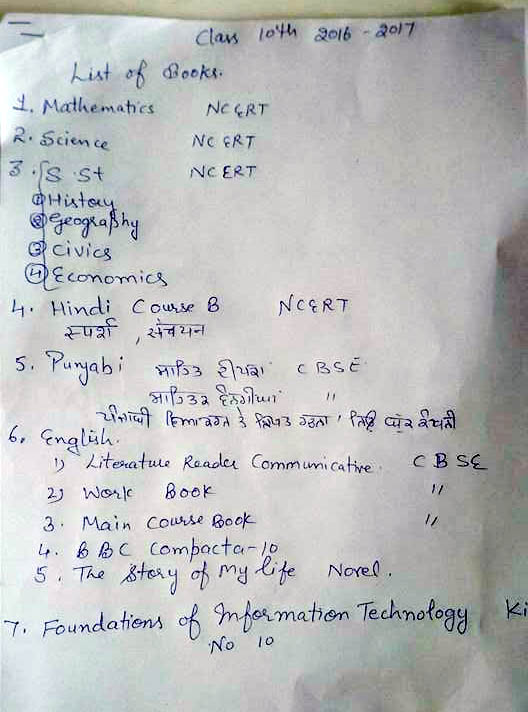 Class 10th 2016 - 2017
List of Books.
1. Mathematics NCERT
2. Science NCERT
3. S.St NCERT
① History
② Geography
③ Civics
④ Economics
4. Hindi Course B NCERT
स्पर्श , संचयन
5. Punjabi ਸਾਹਿਤ CBSE
ਸਾਹਿਤਕ "
ਪੰਜਾਬੀ ਵਿਆਕਰਣ ਤੇ ਲਿਖਤ ਰਚਨਾ,
6. English.
1) Literature Reader Communicative. CBSE
2) Work Book "
3. Main Course Book "
4. BBC Compacta-10
5. The Story of My life Novel.
7. Foundations of Information Technology Ki
No 10